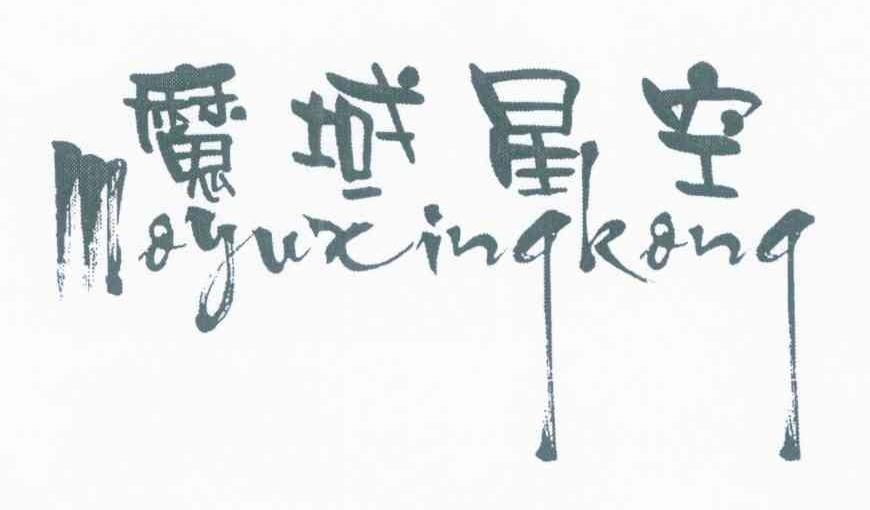 魔域星空
Moyuxingkong